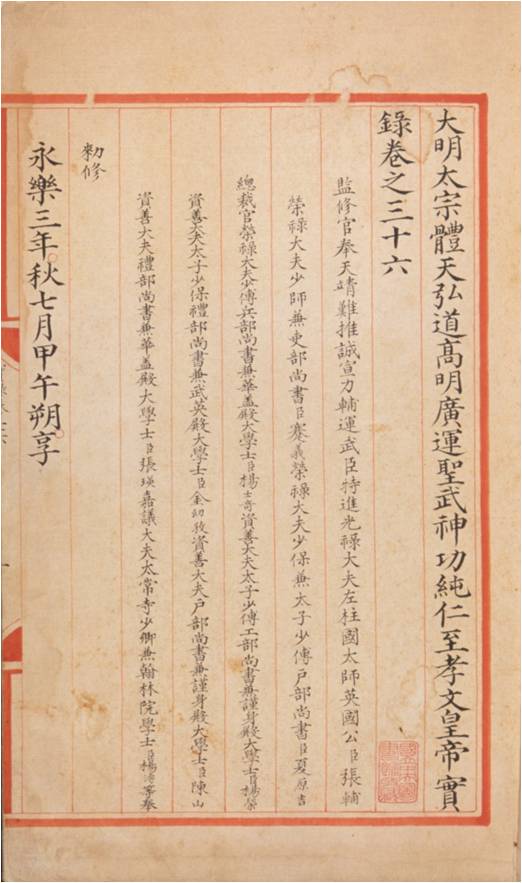 大明太宗體天弘道髙明廣運聖武神功純仁至孝文皇帝實
錄卷之三十六
監修官奉天靖難推誠宣力輔運武臣特進光祿大夫左柱國太師英國公臣張輔
榮祿大夫少師兼吏部尚書臣蹇義榮祿大夫少保兼太子少傅户部尚書臣夏原吉
總裁官榮祿大夫少傅兵部尚書兼華盖殿大學士臣楊士竒資善大夫太子少傅工部尚書兼謹身殿大學士臣楊榮
資善大夫太子少保禮部尚書兼武英殿大學士臣金幼孜資善大夫户部尚書兼謹身殿大學士臣陳山
資善大夫禮部尚書兼華盖殿大學士臣張瑛嘉議大夫太常寺少卿兼翰林院學士臣楊溥等奉
勑修
永樂三年秋七月甲午朔享